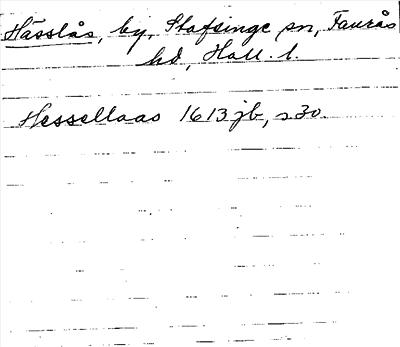 Hässlås, by, Stafsinge sn, Faurås
hd, Hall. l.
Hessellaas 1613 jb, s. 30.